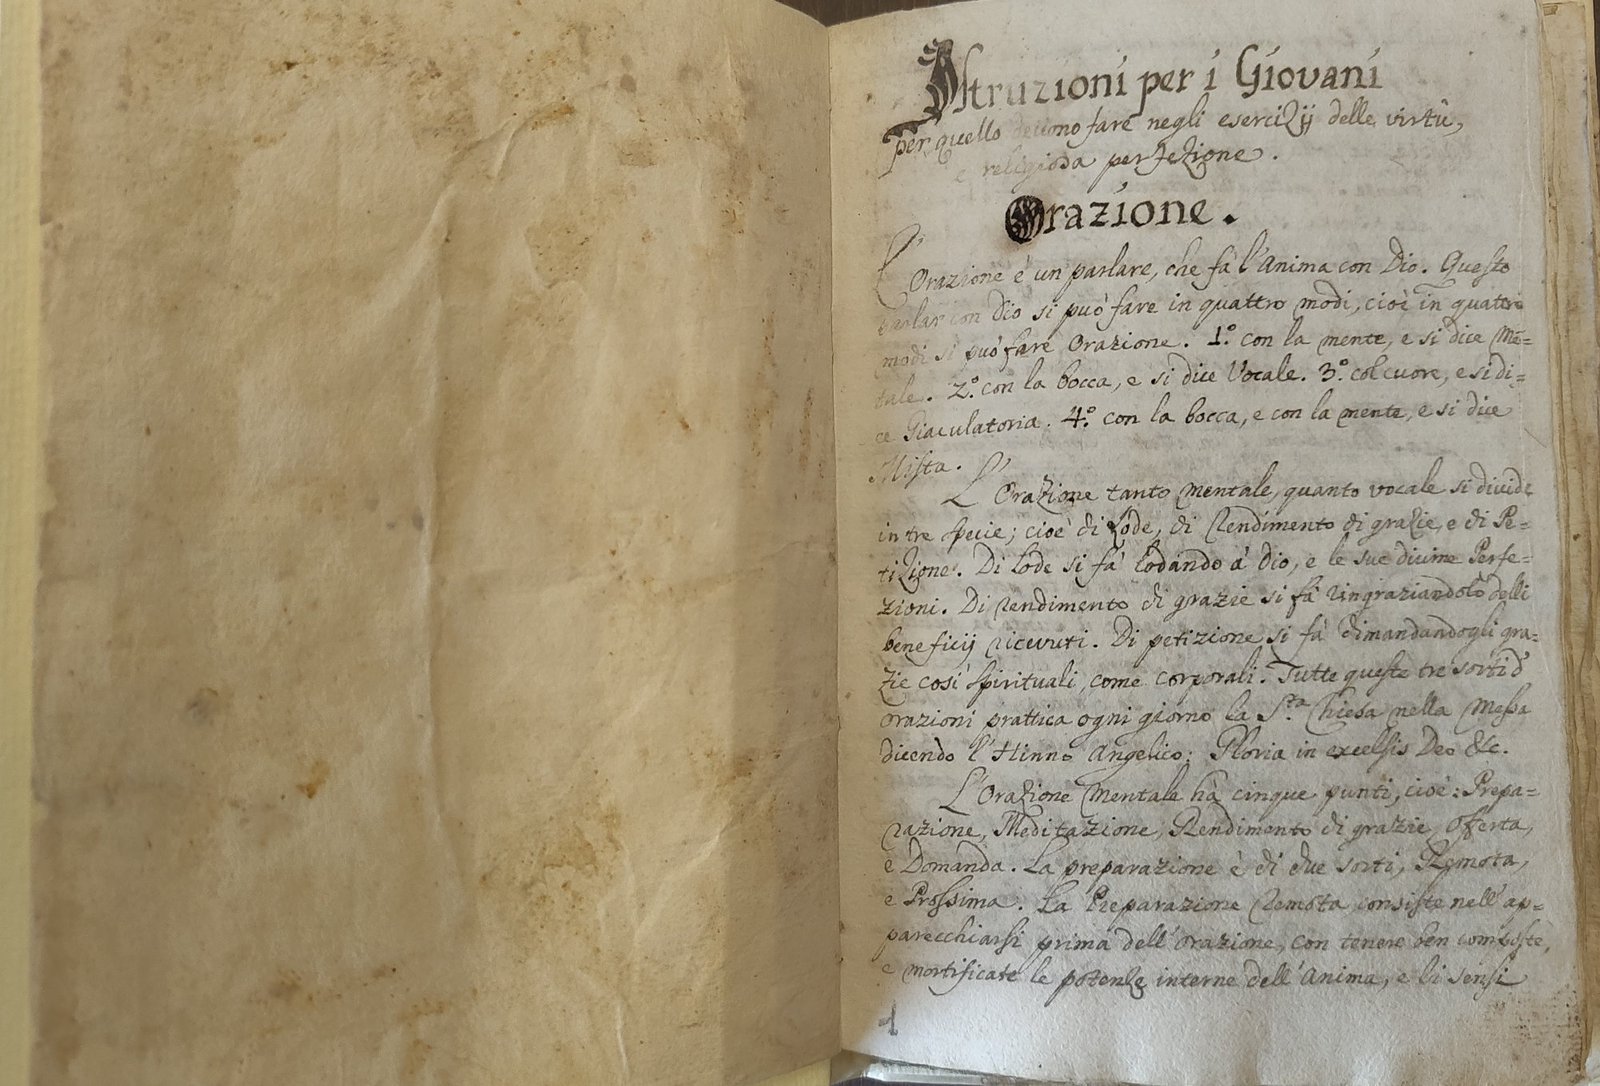 Istruzioni per i Giovani
per quello deuono fare negli esercizij delle virtù,
e religiosa perfezione.
Orazione.
L'Orazione è un parlare, che fà l'Anima con Dio. Questo
parlar con Dio si può fare in quattro modi, cioè in quattro
modi si può fare Orazione. 1.º con la mente, e si dice Mē=
tale. 2.º con la bocca, e si dice Vocale. 3.º col cuore, e si di=
ce Giaculatoria. 4.º con la bocca, e con la mente, e si dice
Mista.
L'Orazione tanto Mentale, quanto vocale si divide
in tre specie; cioè di Lode, di Rendimento di grazie, e di Pe=
tizione. Di Lode si fà lodando à Dio, e le sue divine Perfe=
zioni. Di Rendimento di grazie si fà ringraziandolo delli
beneficij ricevuti. Di petizione si fà dimandandogli gra=
zie così spirituali, come corporali. Tutte queste tre sorti d'
orazioni prattica ogni giorno la S.ta Chiesa nella Messa
dicendo l'Hinno Angelico: Gloria in excelsis Deo &c.
L'Orazione Mentale hà cinque punti, cioè: Prepa=
razione, Meditazione, Rendimento di grazie, Offerta,
e Domanda. La preparazione è di due sorti, Remota,
e Prossima. La Preparazione Remota consiste nell'ap=
parecchiarsi prima dell'orazione, con tenere ben composte,
e mortificate le potenze interne dell'Anima, e li sensi
1